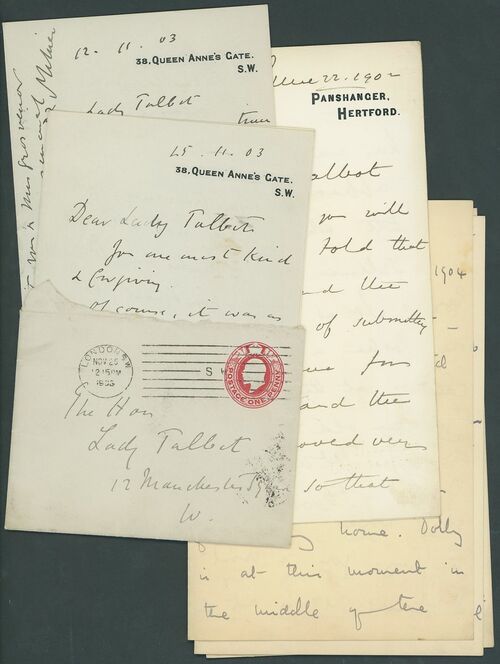 12.11.03
38, QUEEN ANNE'S GATE.
S.W.
Lady Talbot
June 22. 1902
PANSHANGER,
HERTFORD.
Talbot
you will
told that
and the
of submitting
for
and the
so that
25.11.03
38, QUEEN ANNE'S GATE.
S.W.
Dear Lady Talbot
You are most kind
& forgiving.
Of course, it was as
LONDON S.W.
NOV 25
12.15PM
1903
S
POSTAGE ONE PENNY
The Hon
Lady Talbot
12 Manchester Square
W.
1904
home. Dolly
is at this moment in
the middle of the